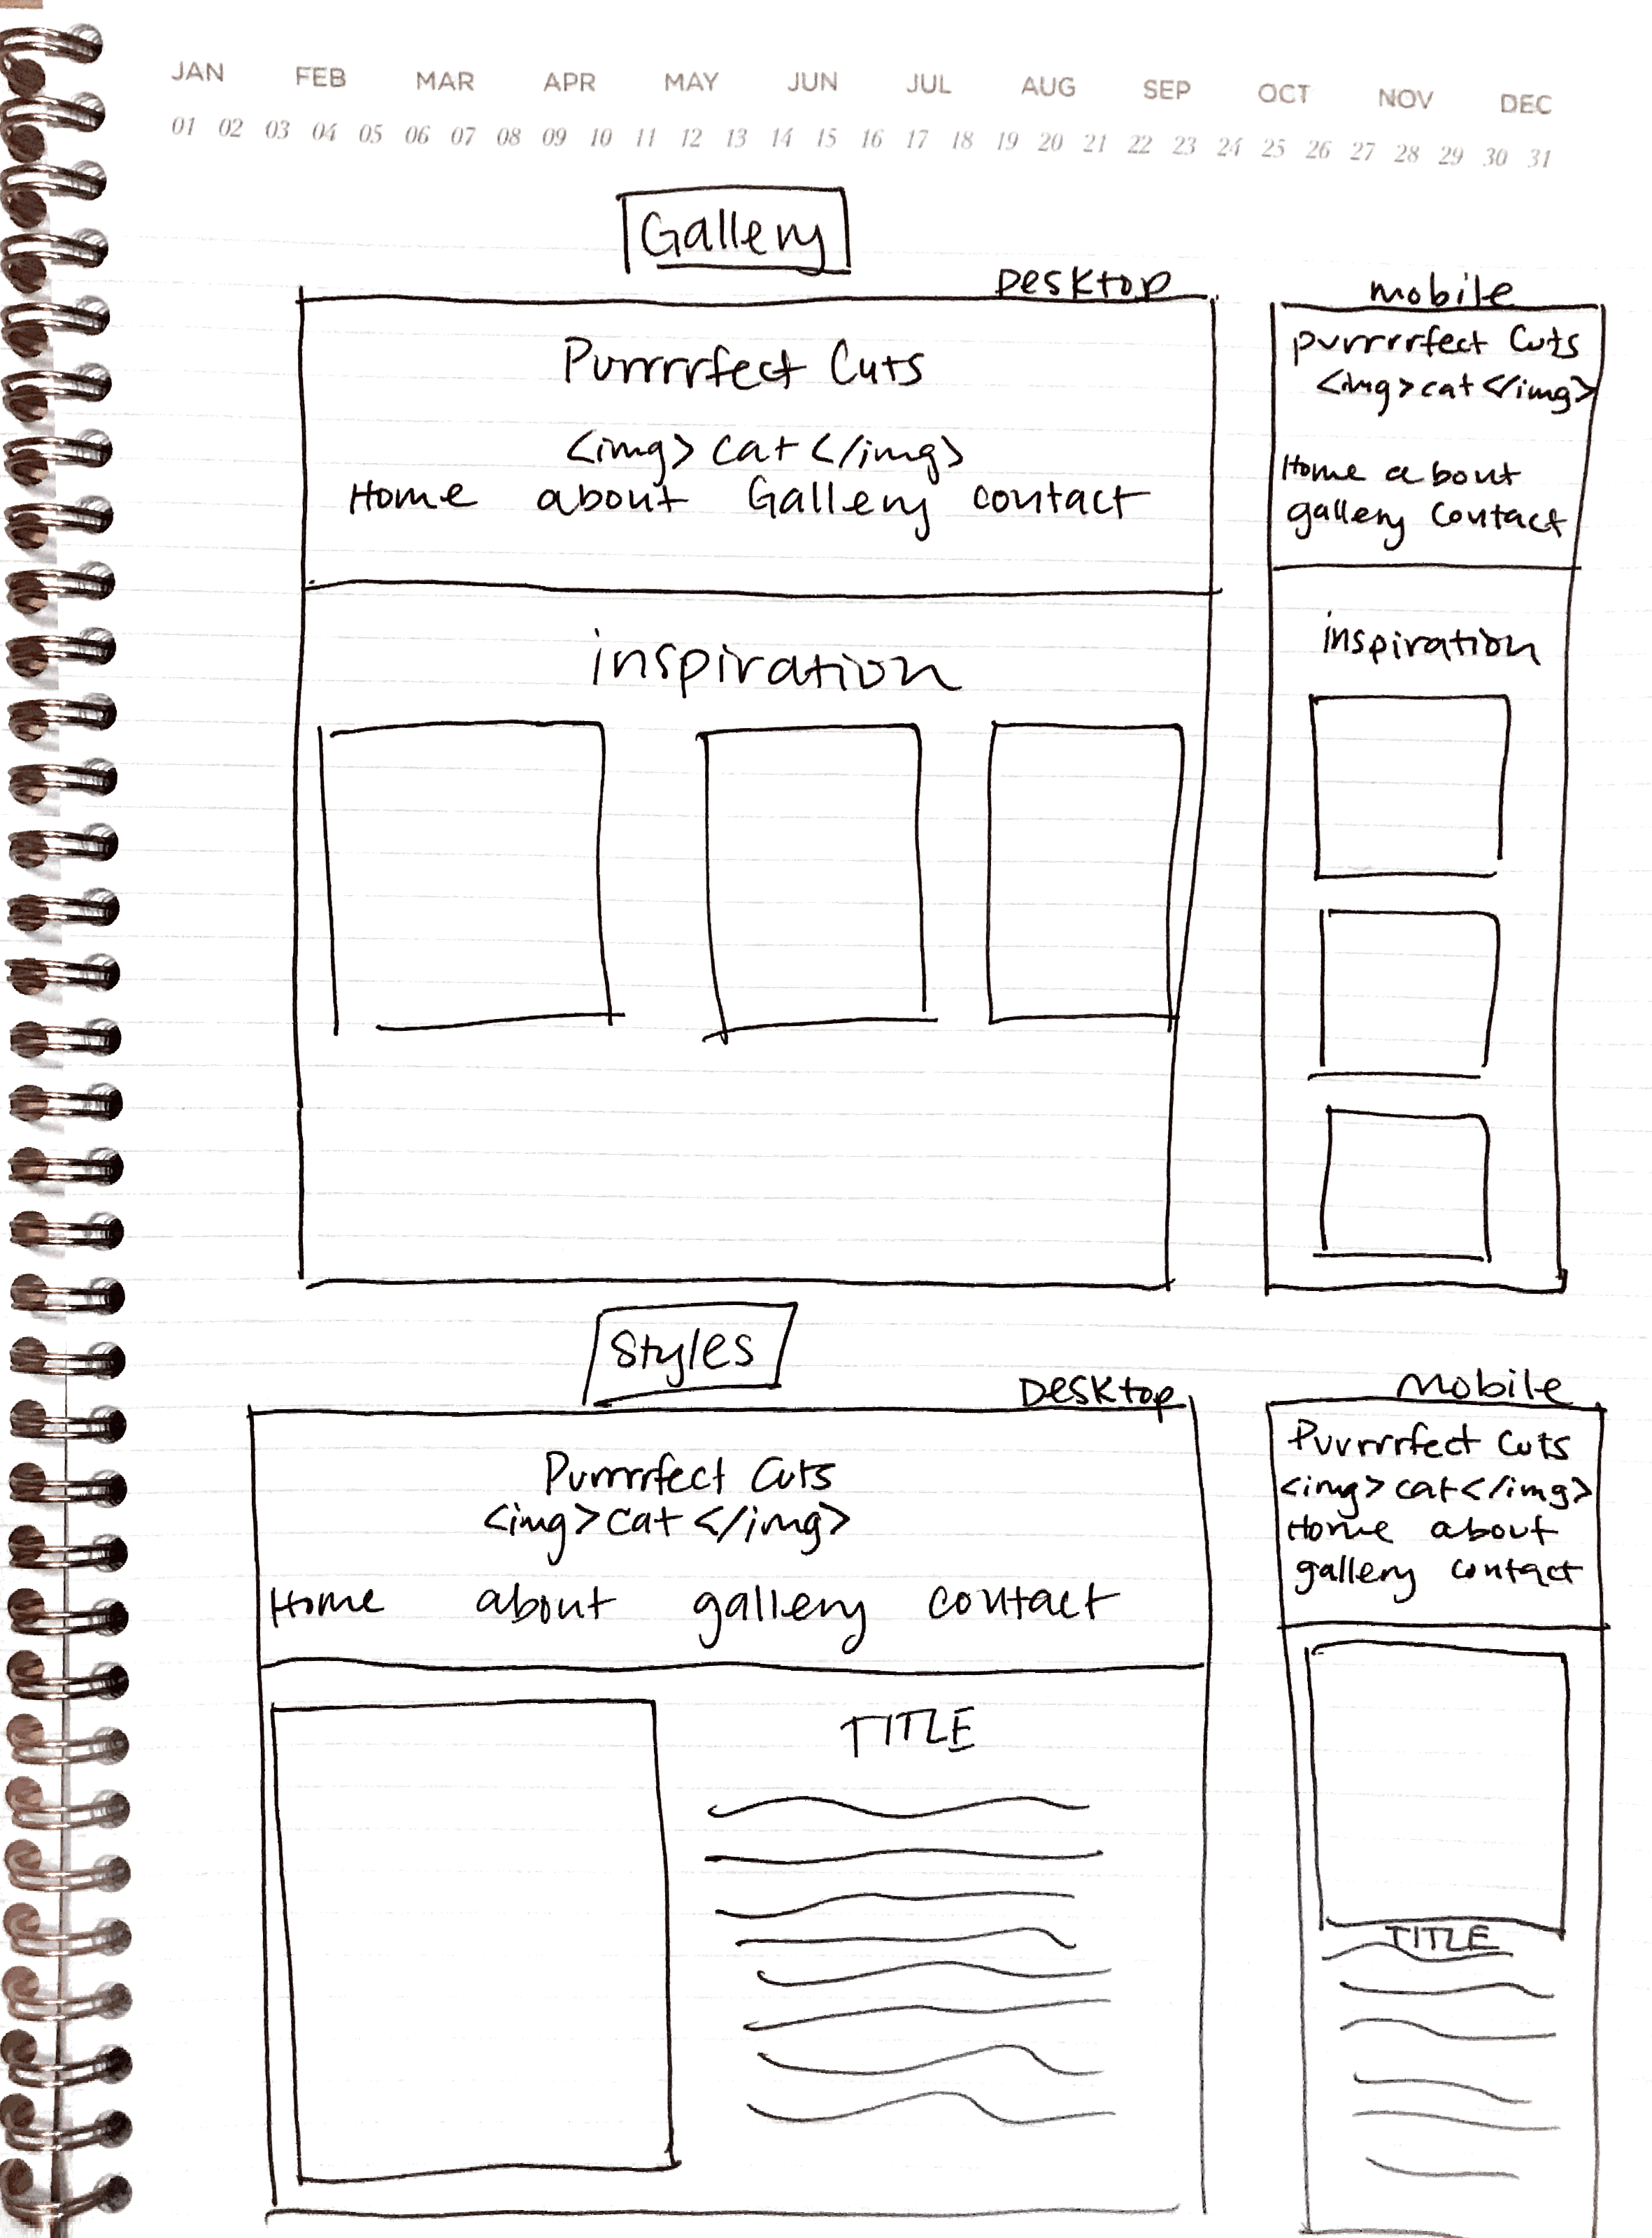 JAN FEB MAR APR MAY JUN JUL AUG SEP OCT NOV DEC
01 02 03 04 05 06 07 08 09 10 11 12 13 14 15 16 17 18 19 20 21 22 23 24 25 26 27 28 29 30 31
Gallery
Desktop
Purrrrfect Cuts
<img> cat </img>
Home about Gallery contact
inspiration
mobile
purrrrfect Cuts
<img> cat </img>
Home about
gallery Contact
inspiration
Styles
Desktop
Purrrrfect Cuts
<img> cat </img>
Home about gallery contact
TITLE
mobile
Purrrrfect Cuts
<img> cat </img>
Home about
gallery contact
TITLE